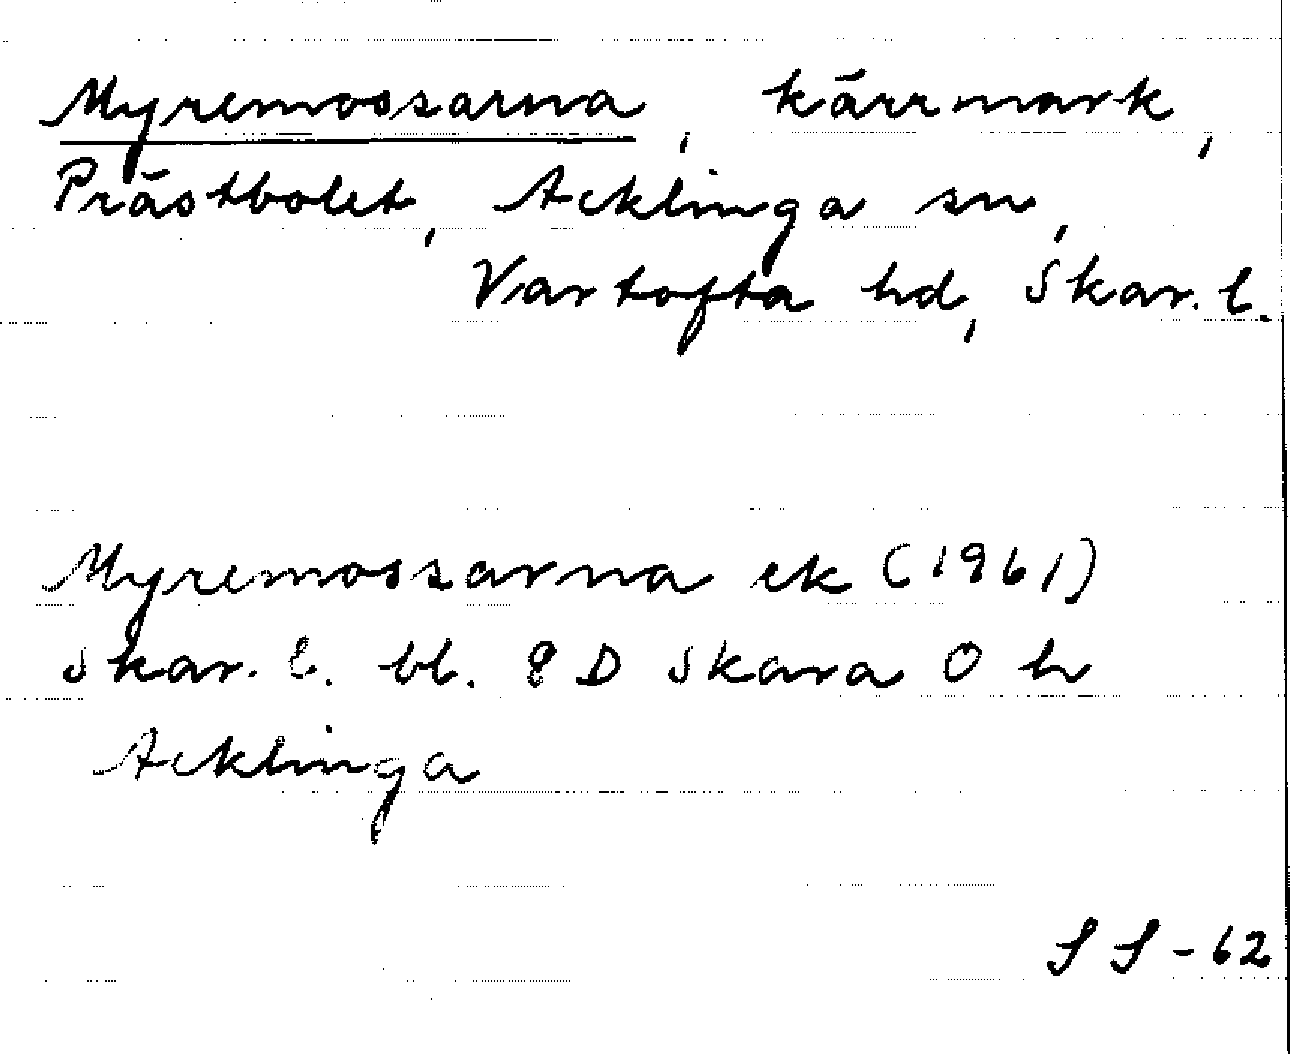 Myremossarna, kärrmark,
Prästbolet, Acklinga sn,
Vartofta hd, Skar. l.
Myremossarna ek (1961)
Skar. l. bl. 8 D Skara 0 h
Acklinga
SS-62